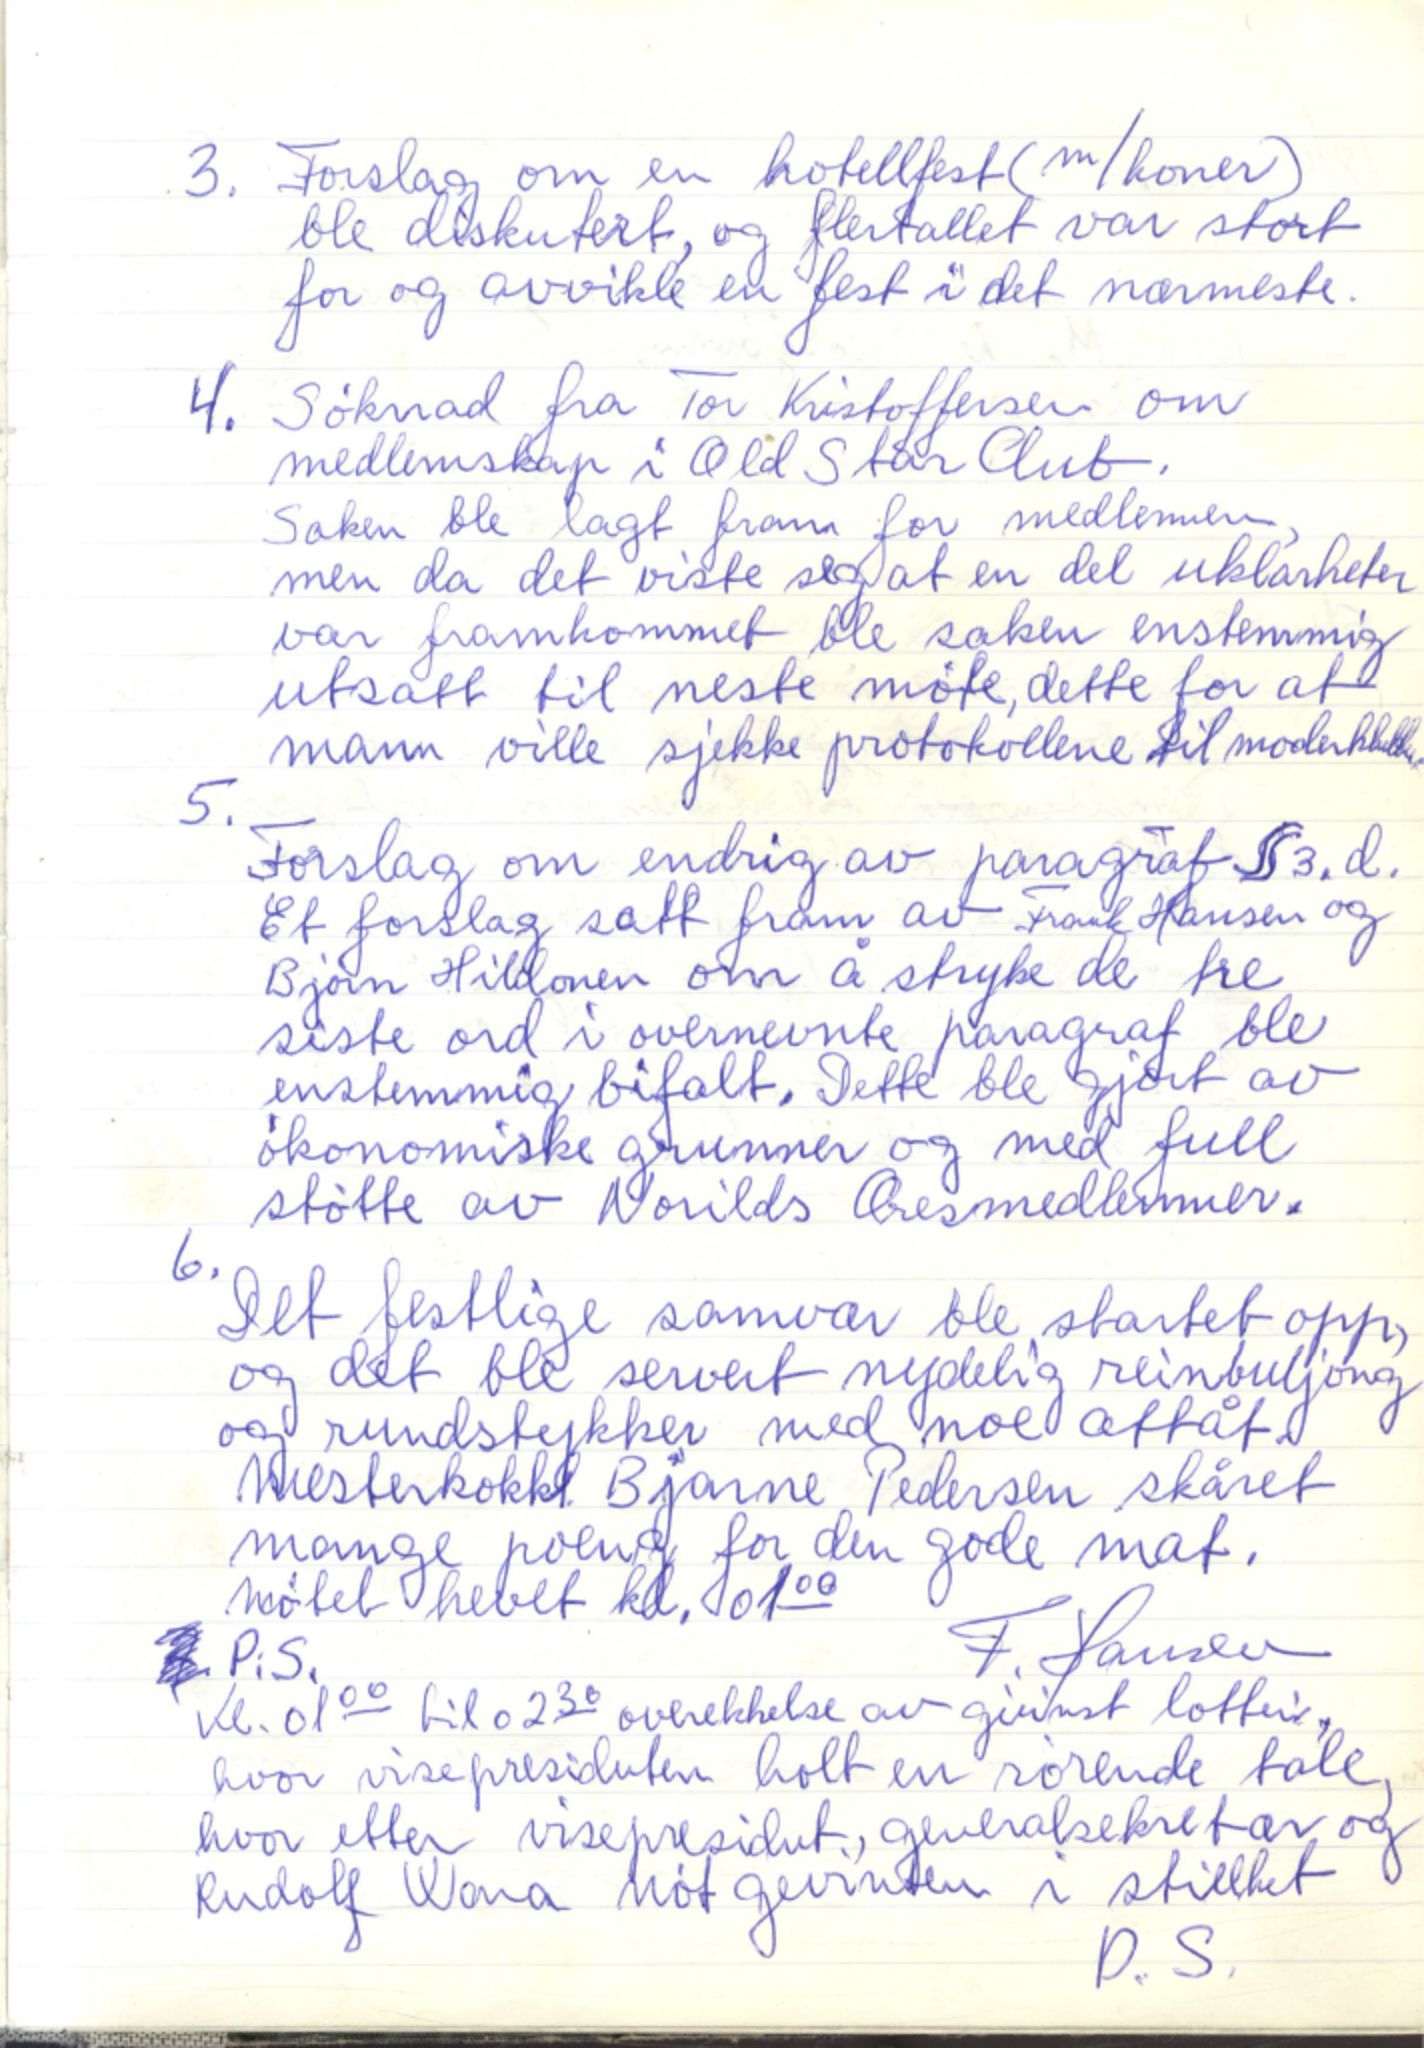 3. Forslag om en hotellfest (m/koner)
ble diskutert, og flertallet var stort
for og avvikle en fest i det nærmeste.
4. Söknad fra Tor Kristoffersen om
medlemskap i Old Star Club.
Saken ble lagt fram for medlemmen,
men da det viste seg at en del uklarheter
var framkommet ble saken enstemmig
utsatt til neste möte, dette for at
mann ville sjekke protokollene til
5.
Forslag om endrig av paragraf §3. d.
Et forslag satt fram av Frank Hansen og
Bjørn Hildonen om å stryke de tre
siste ord i overnevnte paragraf ble
enstemmig bifalt. Dette ble gjort av
ökonomiske grunner og med full
stötte av Norilds Æresmedlemmer.
6.
Det festlige samvær ble startet opp,
og det ble servert nydelig reinbuljong
og rundstykker med noe attåt.
Mesterkokk Bjarne Pedersen skåret
mange poeng for den gode mat.
Mötet hevet kl. 01 00
P.S. F. Hansen
Kl. 01 00 til 02 30 overekkelse av givinst lotteri,
hvor visepresidenten holt en rörende tale,
hvor etter visepresident, generalsekretær og
Rudolf Wara nöt gevinsten i stillhet
P. S.